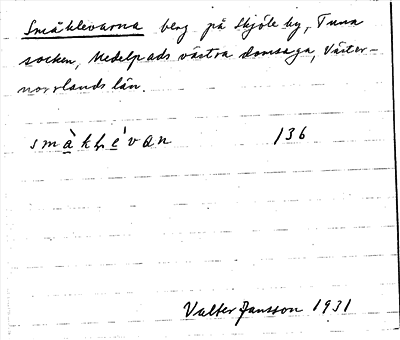 Småklevarna berg på Skjöle by, Tuna
socken, Medelpads västra domsaga, Väster-
norrlands län.
småkḷévan 136
Valter Jansson 1931